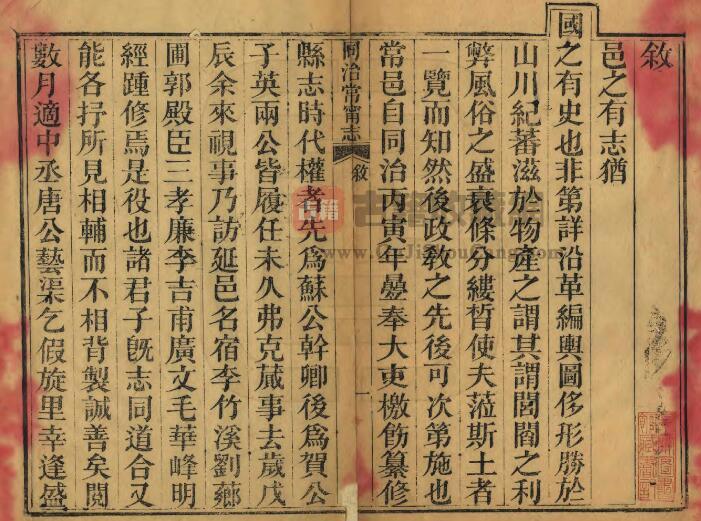 敘
邑之有志猶
國之有史也非第詳沿革編輿圖侈形勝於
山川紀蕃滋於物產之謂其謂閭閻之利
弊風俗之盛衰條分縷晳使夫蒞斯土者
一覽而知然後政教之先後可次第施也
常邑自同治丙寅年曑奉大吏檄飭纂修
同治常甯志 敘 一
縣志時代權者先爲蘇公幹卿後爲賀公
子英兩公皆履任未久弗克蕆事去歲戊
辰余來視事乃訪延邑名宿李竹溪劉薌
圃郭殿臣三孝廉李吉甫廣文毛華峰明
經踵修焉是役也諸君子旣志同道合又
能各抒所見相輔而不相背製誠善矣閱
數月適中丞唐公藝渠乞假旋里幸逢盛
古籍
www.GuJiShouCang.com